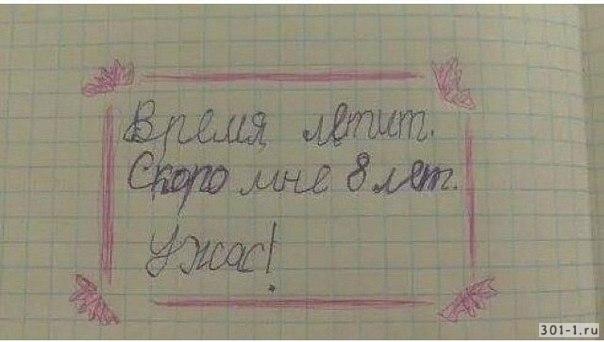 Время летит.
Скоро мне 8 лет.
Ужас!
301-1.ru